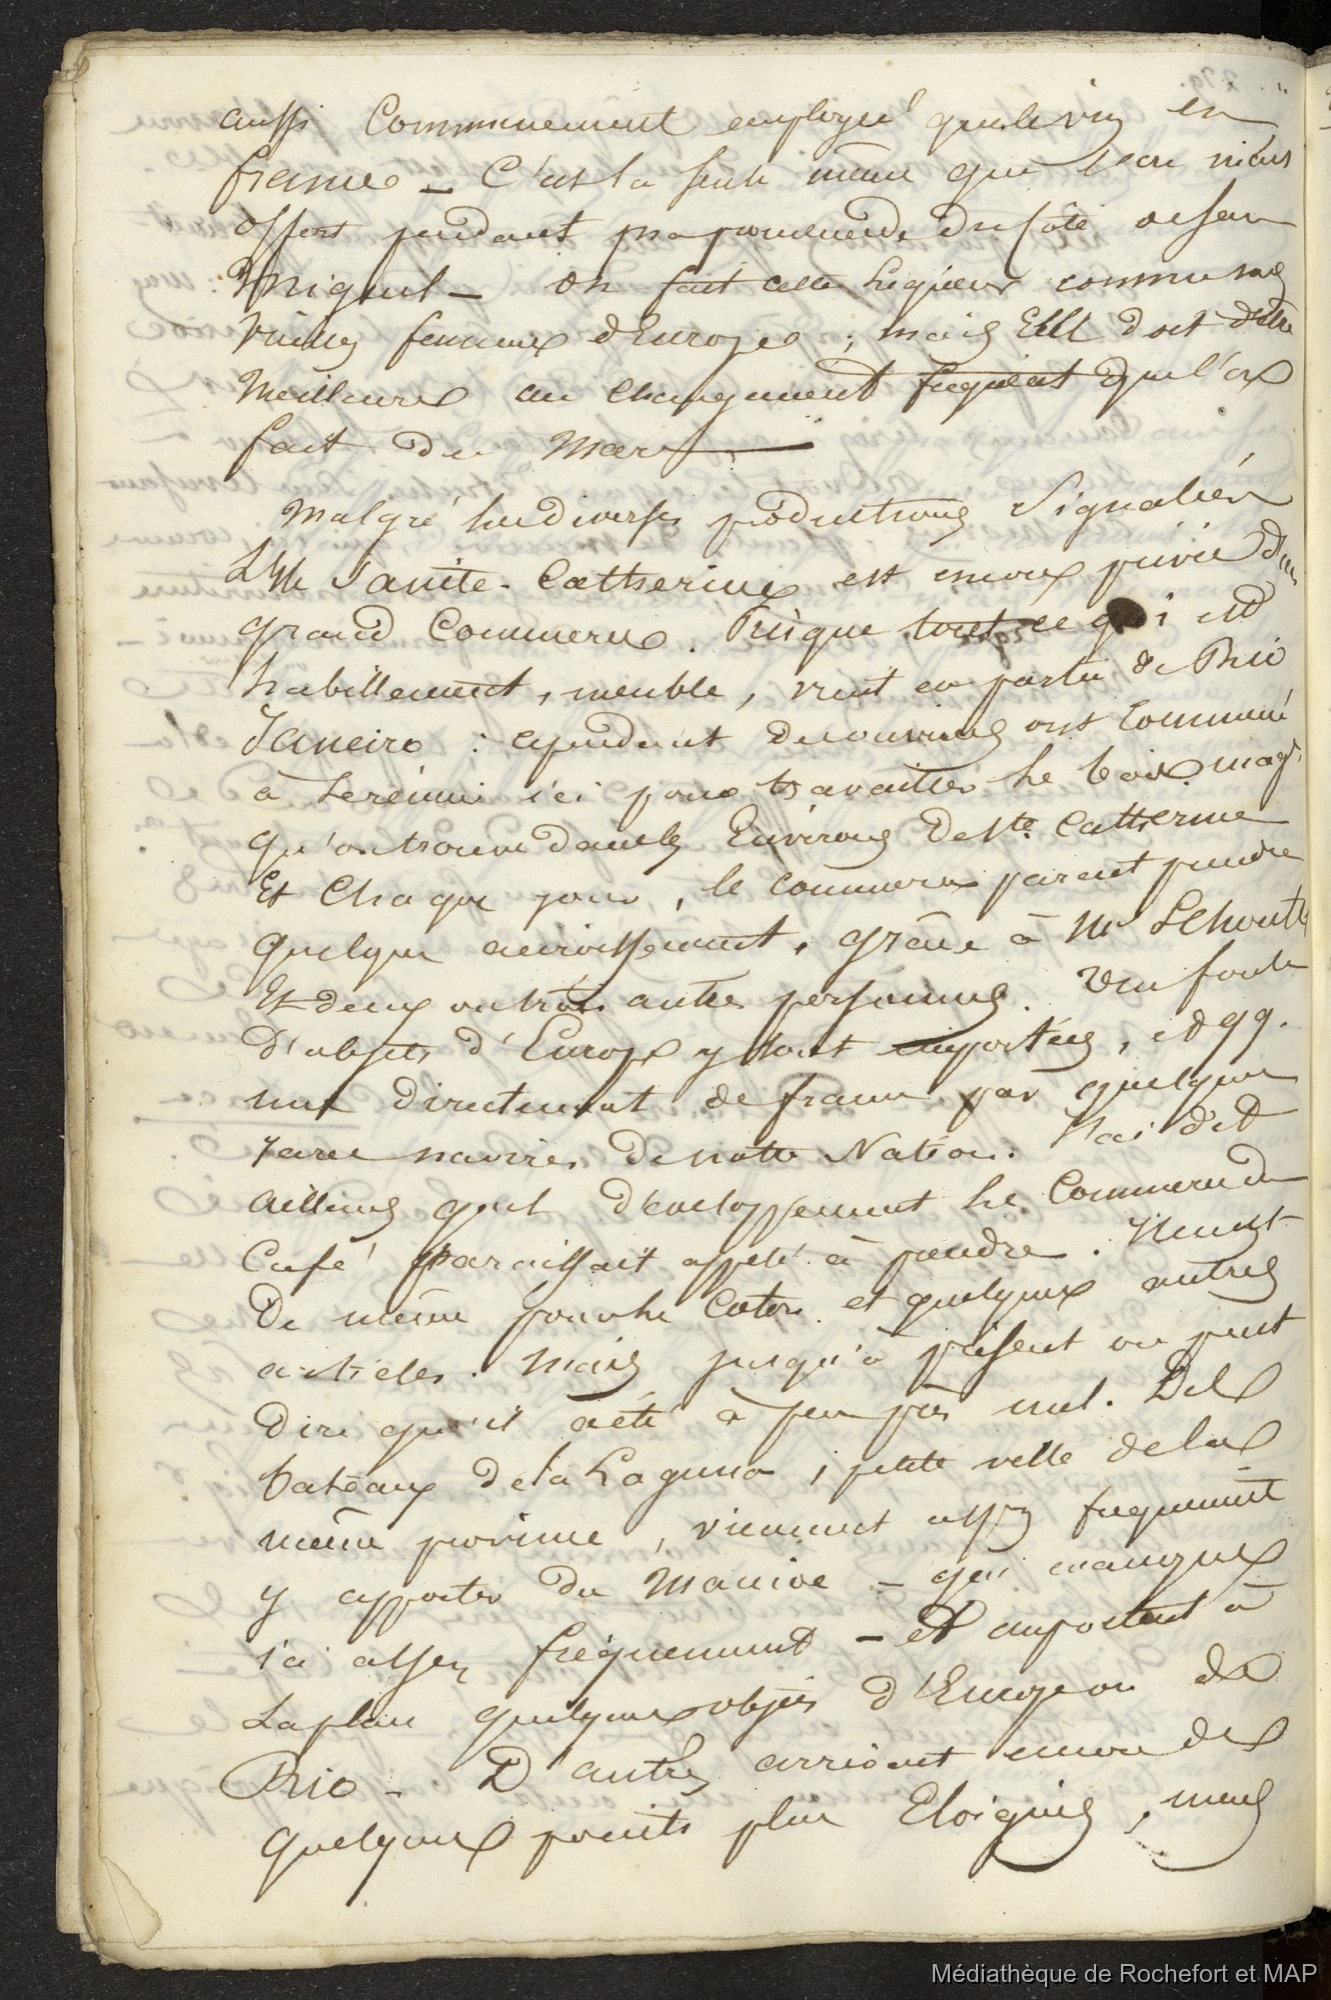 aussi communément employé que le vin en
france — C'est la seule même que l'on m'ait
offert pendant ma promenade du côté de san
Miguel — on fait cette liqueur comme nos
vins fameux d'Europe ; mais Elle doit d'être
meilleure au changement fréquent que l'on
fait du Marc —
Malgré les diverses productions signalées
L'Ile Sainte-Catherine est encore privée d'un
grand Commerce. Presque tout ce qui est
habillement, meuble, vient en partie de Rio
Janeiro : cependant des ouvriers ont commencé
à se réunir ici pour travailler le bois mag.
qu'on trouve dans les Environs de Ste. Catherine
Et Chaque jour, le commerce parait prendre
quelque accroissement, grâce à Mr
Et deux ou trois autres personnes. Une foule
d'objets d'Europe y sont importés, et qq.
uns directement de france par quelques
rares navires de notre Nation. J'ai dit
ailleurs quel développement le Commerce du
Café paraissait appelé à prendre. Il en est
De même pour le Coton et quelques autres
articles. Mais jusqu'à présent on peut
Dire qu'il a été à peu près nul. Des
bateaux de la Laguna, petite ville de la
même province, viennent assez fréquemment
y apporter du Manioc — qui manque
ici assez fréquemment — et emportent à
La place quelques objets d'Europe ou de
Rio — D'autres arrivent encore de
quelques points plus Eloignés, mais